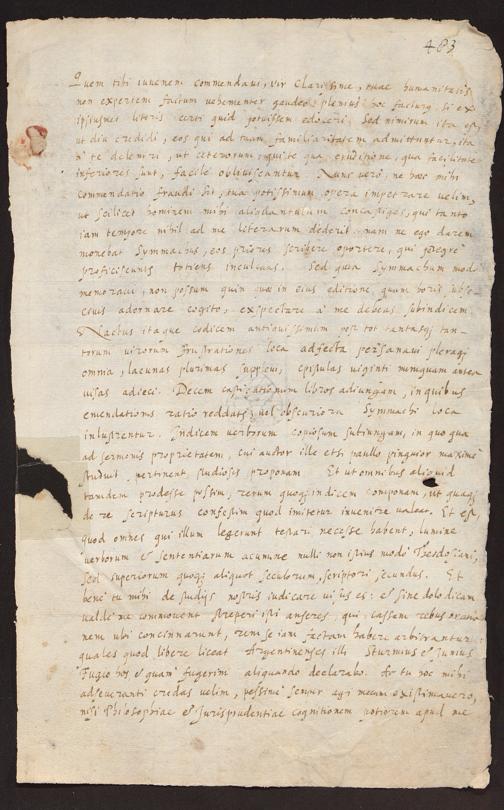 483
Quem tibi iuvenem commendavi, vir Clarissime, tuae humanitatis
non expertem factum vehementer gaudeo: plenius hoc facturus, si ex
ipsiusmet literis certi quid potuissem edoceri. Sed nimirum ita est,
ut diu credidi, eos qui ad tuam familiaritatem admittuntur, ita
a te deleniri, ut ceterorum, qui te qua eruditione, qua facilitate
inferiores sunt, facile obliviscantur. Nunc vero, ne hoc mihi
commendatio fraudi sit, tua potissimum opera impetrare velim,
ut scilicet hominem mihi aliquantulum concastiges, qui tanto
iam tempore nihil ad me literarum dederit. nam ne ego darem
monebat Symmachus, eos priores scribere oportere, qui peregre
proficiscuntur totiens inculcans. Sed quia Symmachum modo
memoravi, non possum quin quae in eius editione, quam boris
cogito, exspectare a me debeas subindicem.
Nactus itaque codicem antiquissimum post tot tantasq; tan-
torum virorum frustrationes loca adfecta persanavi pleraq;
omnia, lacunas plurimas supplevi, epistulas viginti nunquam antea
visas adieci. Decem castigationum libros adiungam, in quibus
emendationis ratio reddatur, vel obscuriora Symmachi loca
inlustrentur. Indicem verborum copiosum subiungam, in quo quae
ad sermonis proprietatem, cui auctor ille etsi paullo pinguior maxime
studuit, pertinent, studiosis proponam. Et ut omnibus aliquid
tandem prodesse possim, rerum quoq; indicem componam, ut quaq;
de re scripturus confestim quod imitetur invenire valeat. Et est,
quod omnes qui illum legerunt testari necesse habent, lumine
verborum & sententiarum acumine nulli non istius modo Theodosiani,
sed superiorum quoq; aliquot seculorum, scriptori secundus. Et
bene tu mihi de studijs nostris iudicare visus es: & sine dolo dicam
valde me commovent streperi isti anseres, qui, cassam rebus oratio-
nem ubi concinnarunt, rem se iam factam habere arbitrantur:
quales quod libere liceat Argentinenses illi Sturmius & Junius
Fugio hos & quam fugerim aliquando declarabo. At tu hoc mihi
adseveranti credas velim, pessime semper agi mecum existimavero,
nisi Philosophiae & Jurisprudentiae cognitionem potiorem apud me